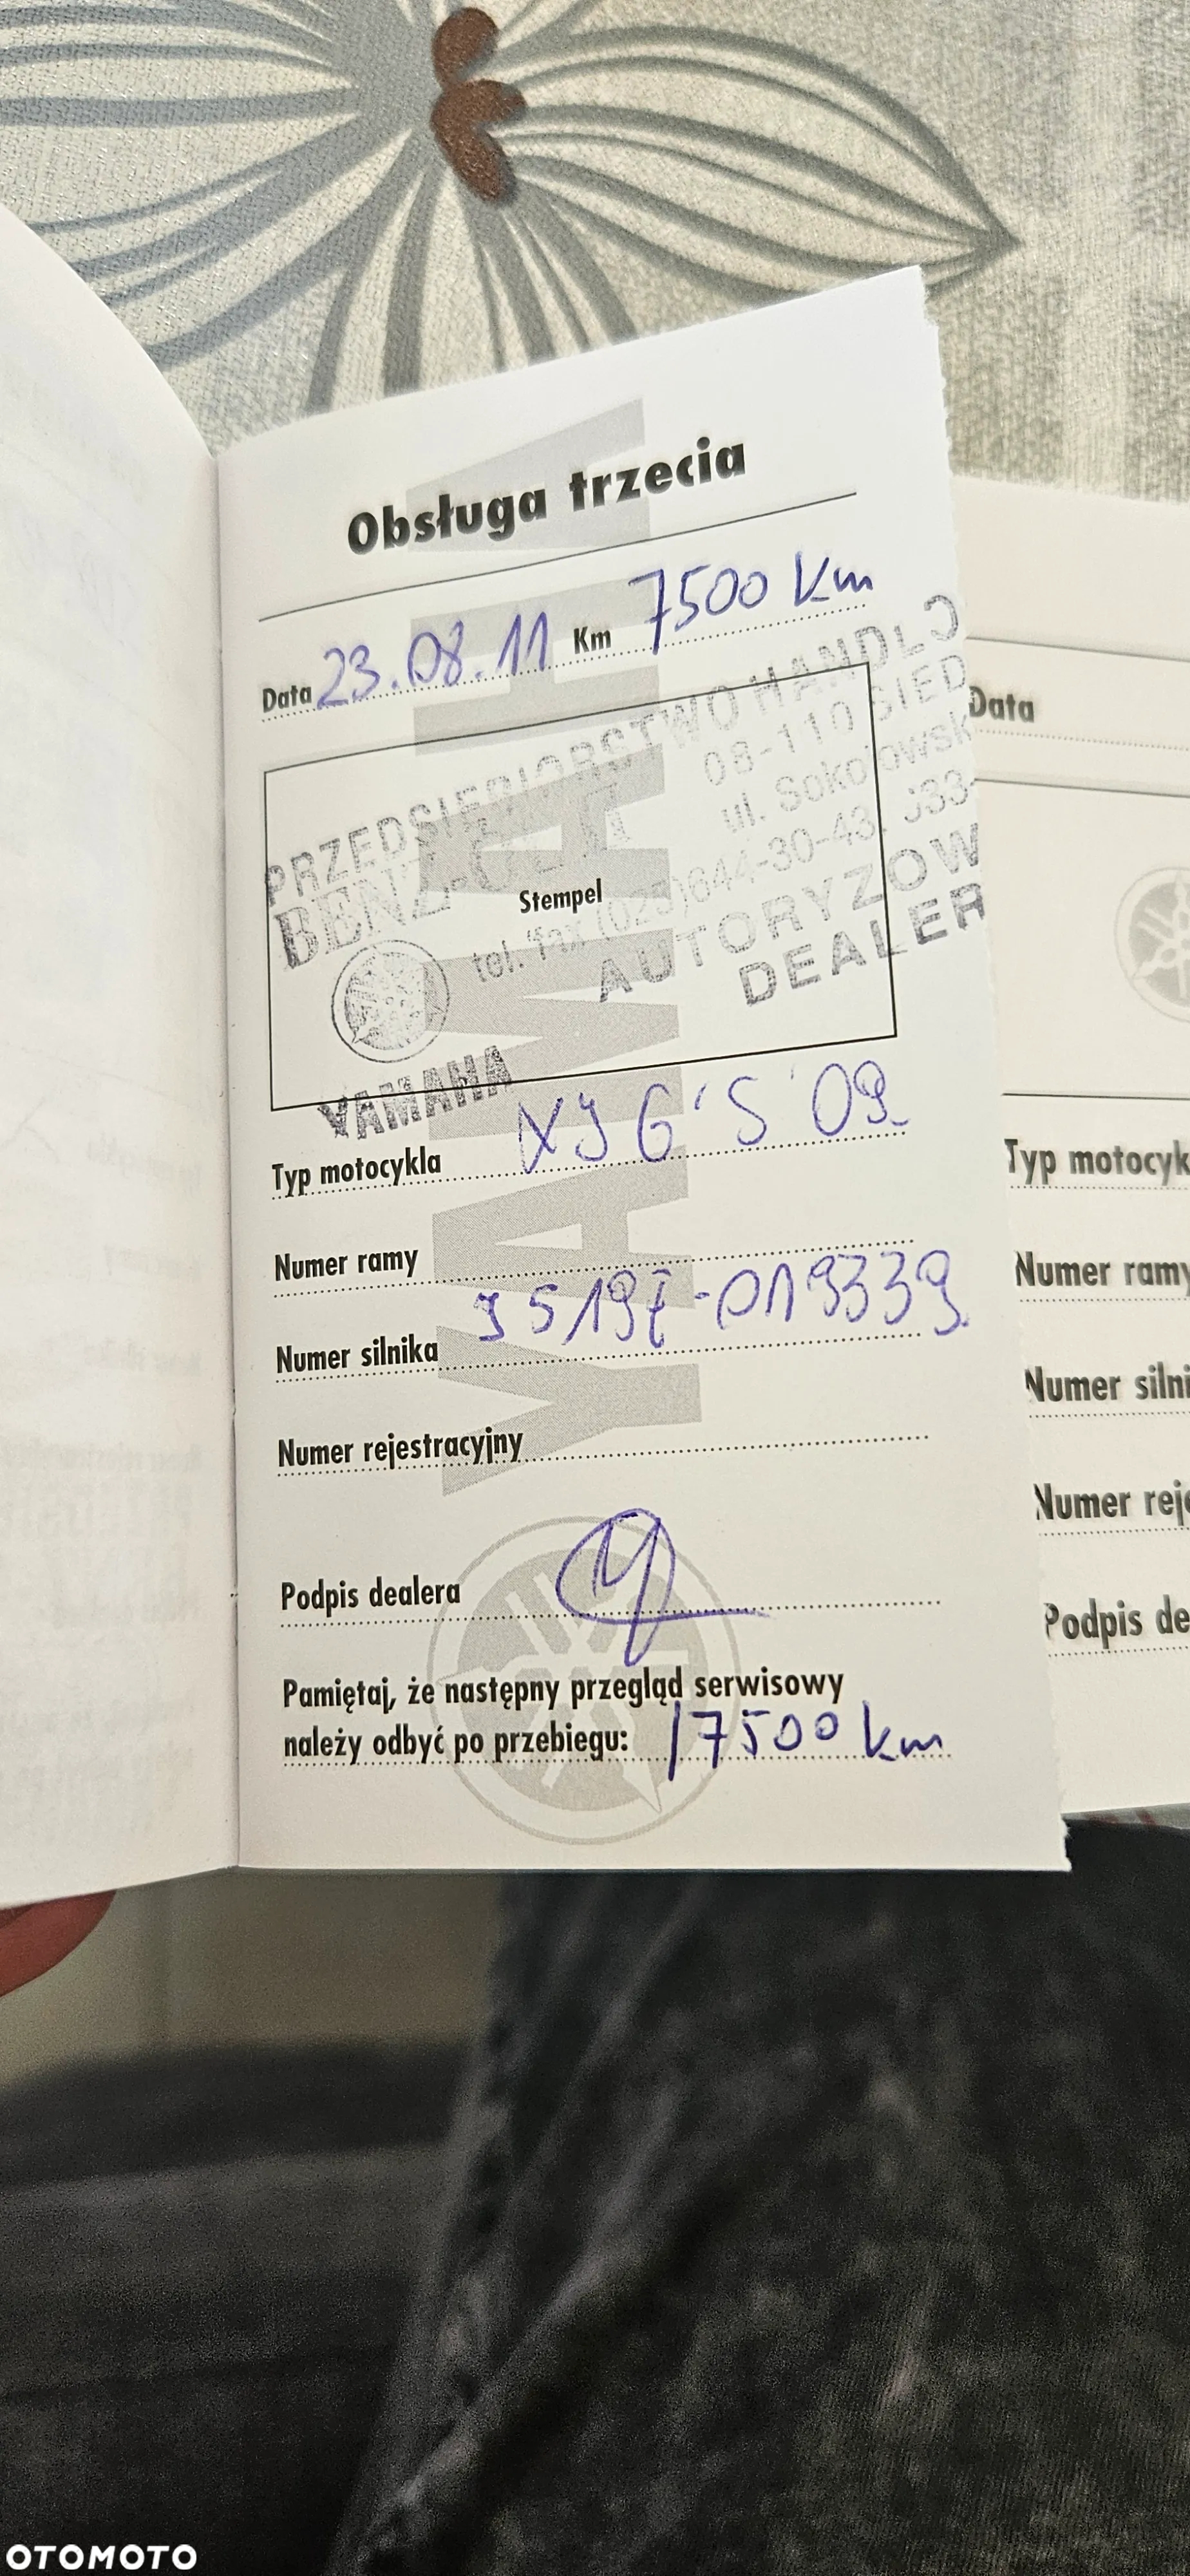 Obsługa trzecia
Data 23.08.11 Km 7500 km
PRZEDSIĘBIORSTWO HANDLO
BENZ-
08-110 SIED
ul. Sokołowsk
tel. fax (025)644-30-43, 633-
AUTORYZOW
DEALER
Stempel
YAMAHA
Typ motocykla XJ6'S'09
Numer ramy
Numer silnika J519E-019339
Numer rejestracyjny
Podpis dealera
Pamiętaj, że następny przegląd serwisowy
należy odbyć po przebiegu: 17500 km
YAMAHA
Data
Typ motocyk
Numer ramy
Numer silni
Numer reje
Podpis de
OTOMOTO